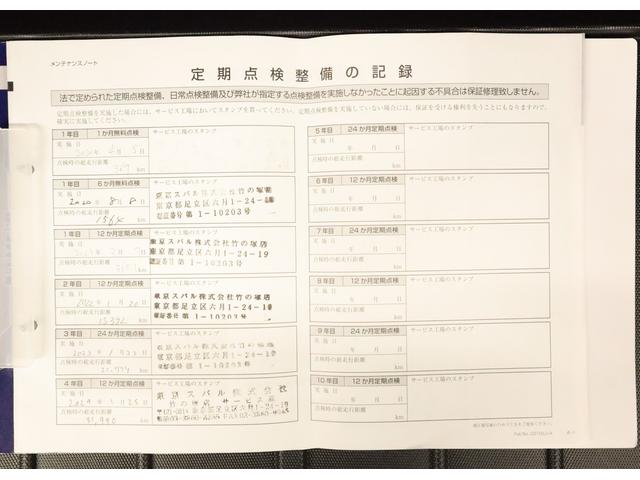 メンテナンスノート
定期点検整備の記録
法で定められた定期点検整備、日常点検整備及び弊社が指定する点検整備を実施しなかったことに起因する不具合は保証修理致しません。
定期点検整備を実施した場合には、サービス工場においてスタンプを貰ってください。定期点検整備を実施していない場合には、保証を受ける権利を失うこともなりますので、
確実に実施してください。
1年目 1か月無料点検 サービス工場のスタンプ
実施日
年 月 日
点検時の総走行距離
km
1年目 6か月無料点検 サービス工場のスタンプ
実施日
2020年8月8日
点検時の総走行距離
1564 km
東京スバル株式会社竹の塚店
東京都足立区六月1-24-19
認証番号第1-10203号
1年目 12か月定期点検 サービス工場のスタンプ
実施日
点検時の総走行距離
km
東京スバル株式会社竹の塚店
東京都足立区六月1-24-19
認証番号第1-10203号
2年目 12か月定期点検 サービス工場のスタンプ
実施日
2022年1月20日
点検時の総走行距離
km
東京スバル株式会社竹の塚店
東京都足立区六月1-24-19
認証番号第1-10203号
3年目 24か月定期点検 サービス工場のスタンプ
実施日
点検時の総走行距離
km
東京スバル株式会社竹の塚店
東京都足立区六月1-24-19
4年目 12か月定期点検 サービス工場のスタンプ
実施日
2024年1月25日
点検時の総走行距離
km
東京スバル株式会社
竹の塚店 サービス課
東京都足立区六月1-24-19
5年目 24か月定期点検 サービス工場のスタンプ
実施日
年 月 日
点検時の総走行距離
km
6年目 12か月定期点検 サービス工場のスタンプ
実施日
年 月 日
点検時の総走行距離
km
7年目 24か月定期点検 サービス工場のスタンプ
実施日
年 月 日
点検時の総走行距離
km
8年目 12か月定期点検 サービス工場のスタンプ
実施日
年 月 日
点検時の総走行距離
km
9年目 24か月定期点検 サービス工場のスタンプ
実施日
年 月 日
点検時の総走行距離
km
10年目 12か月定期点検 サービス工場のスタンプ
実施日
年 月 日
点検時の総走行距離
km